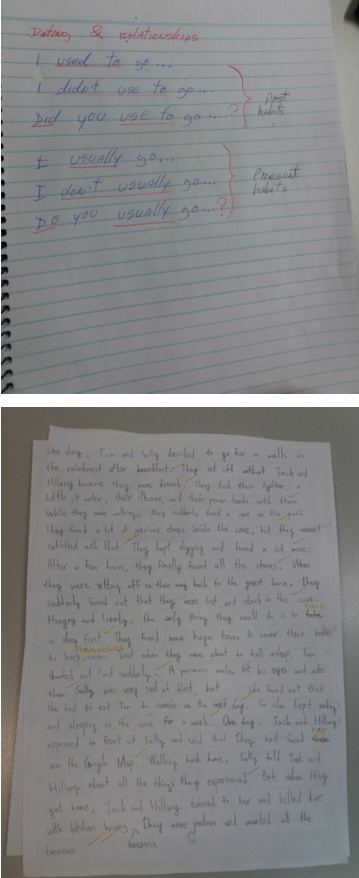 Dating & relationships
I used to go...
I didn't use to go...
Did you use to go...?
Past habits
I usually go...
I don't usually go...
Do you usually go...?
Present habits
One day, Tom and Sally decided to go for a walk in
the rainforest after breakfast. They set off without Jack and
Hilary because they were drunk. They took their lighter, a
bottle of water, their iPhones, and their power banks with them.
While they were walking, they suddenly found a cave on the path.
They found a lot of precious stones inside the cave, but they weren't
satisfied with that. They kept digging and found a lot more.
After a few hours, they finally found all the stones. When
they were setting off on their way back to the guest house, they
suddenly found out that they were lost and stuck in the cave.
Hungry and lonely, the only thing they could do is to
a sleep first. They found some huge leaves to cover their bodies
themselves
to keep warm. Just when they were about to fall asleep, Tom
shouted out loud suddenly. A poisonous snake bit his eyes and ate
them. Sally was very sad at first, but she found out that
she had to eat Tom to survive on the next day. So she kept eating
and sleeping in the cave for a week. One day, Jack and Hillary
her
appeared in front of Sally and said that they had found
on the Google Map. Walking back home, Sally told Jack and
Hillary about all the things they experienced. But when they
got home, Jack and Hillary turned to her and killed her
with kitchen knives. They were jealous and wanted all the
because
treasure.